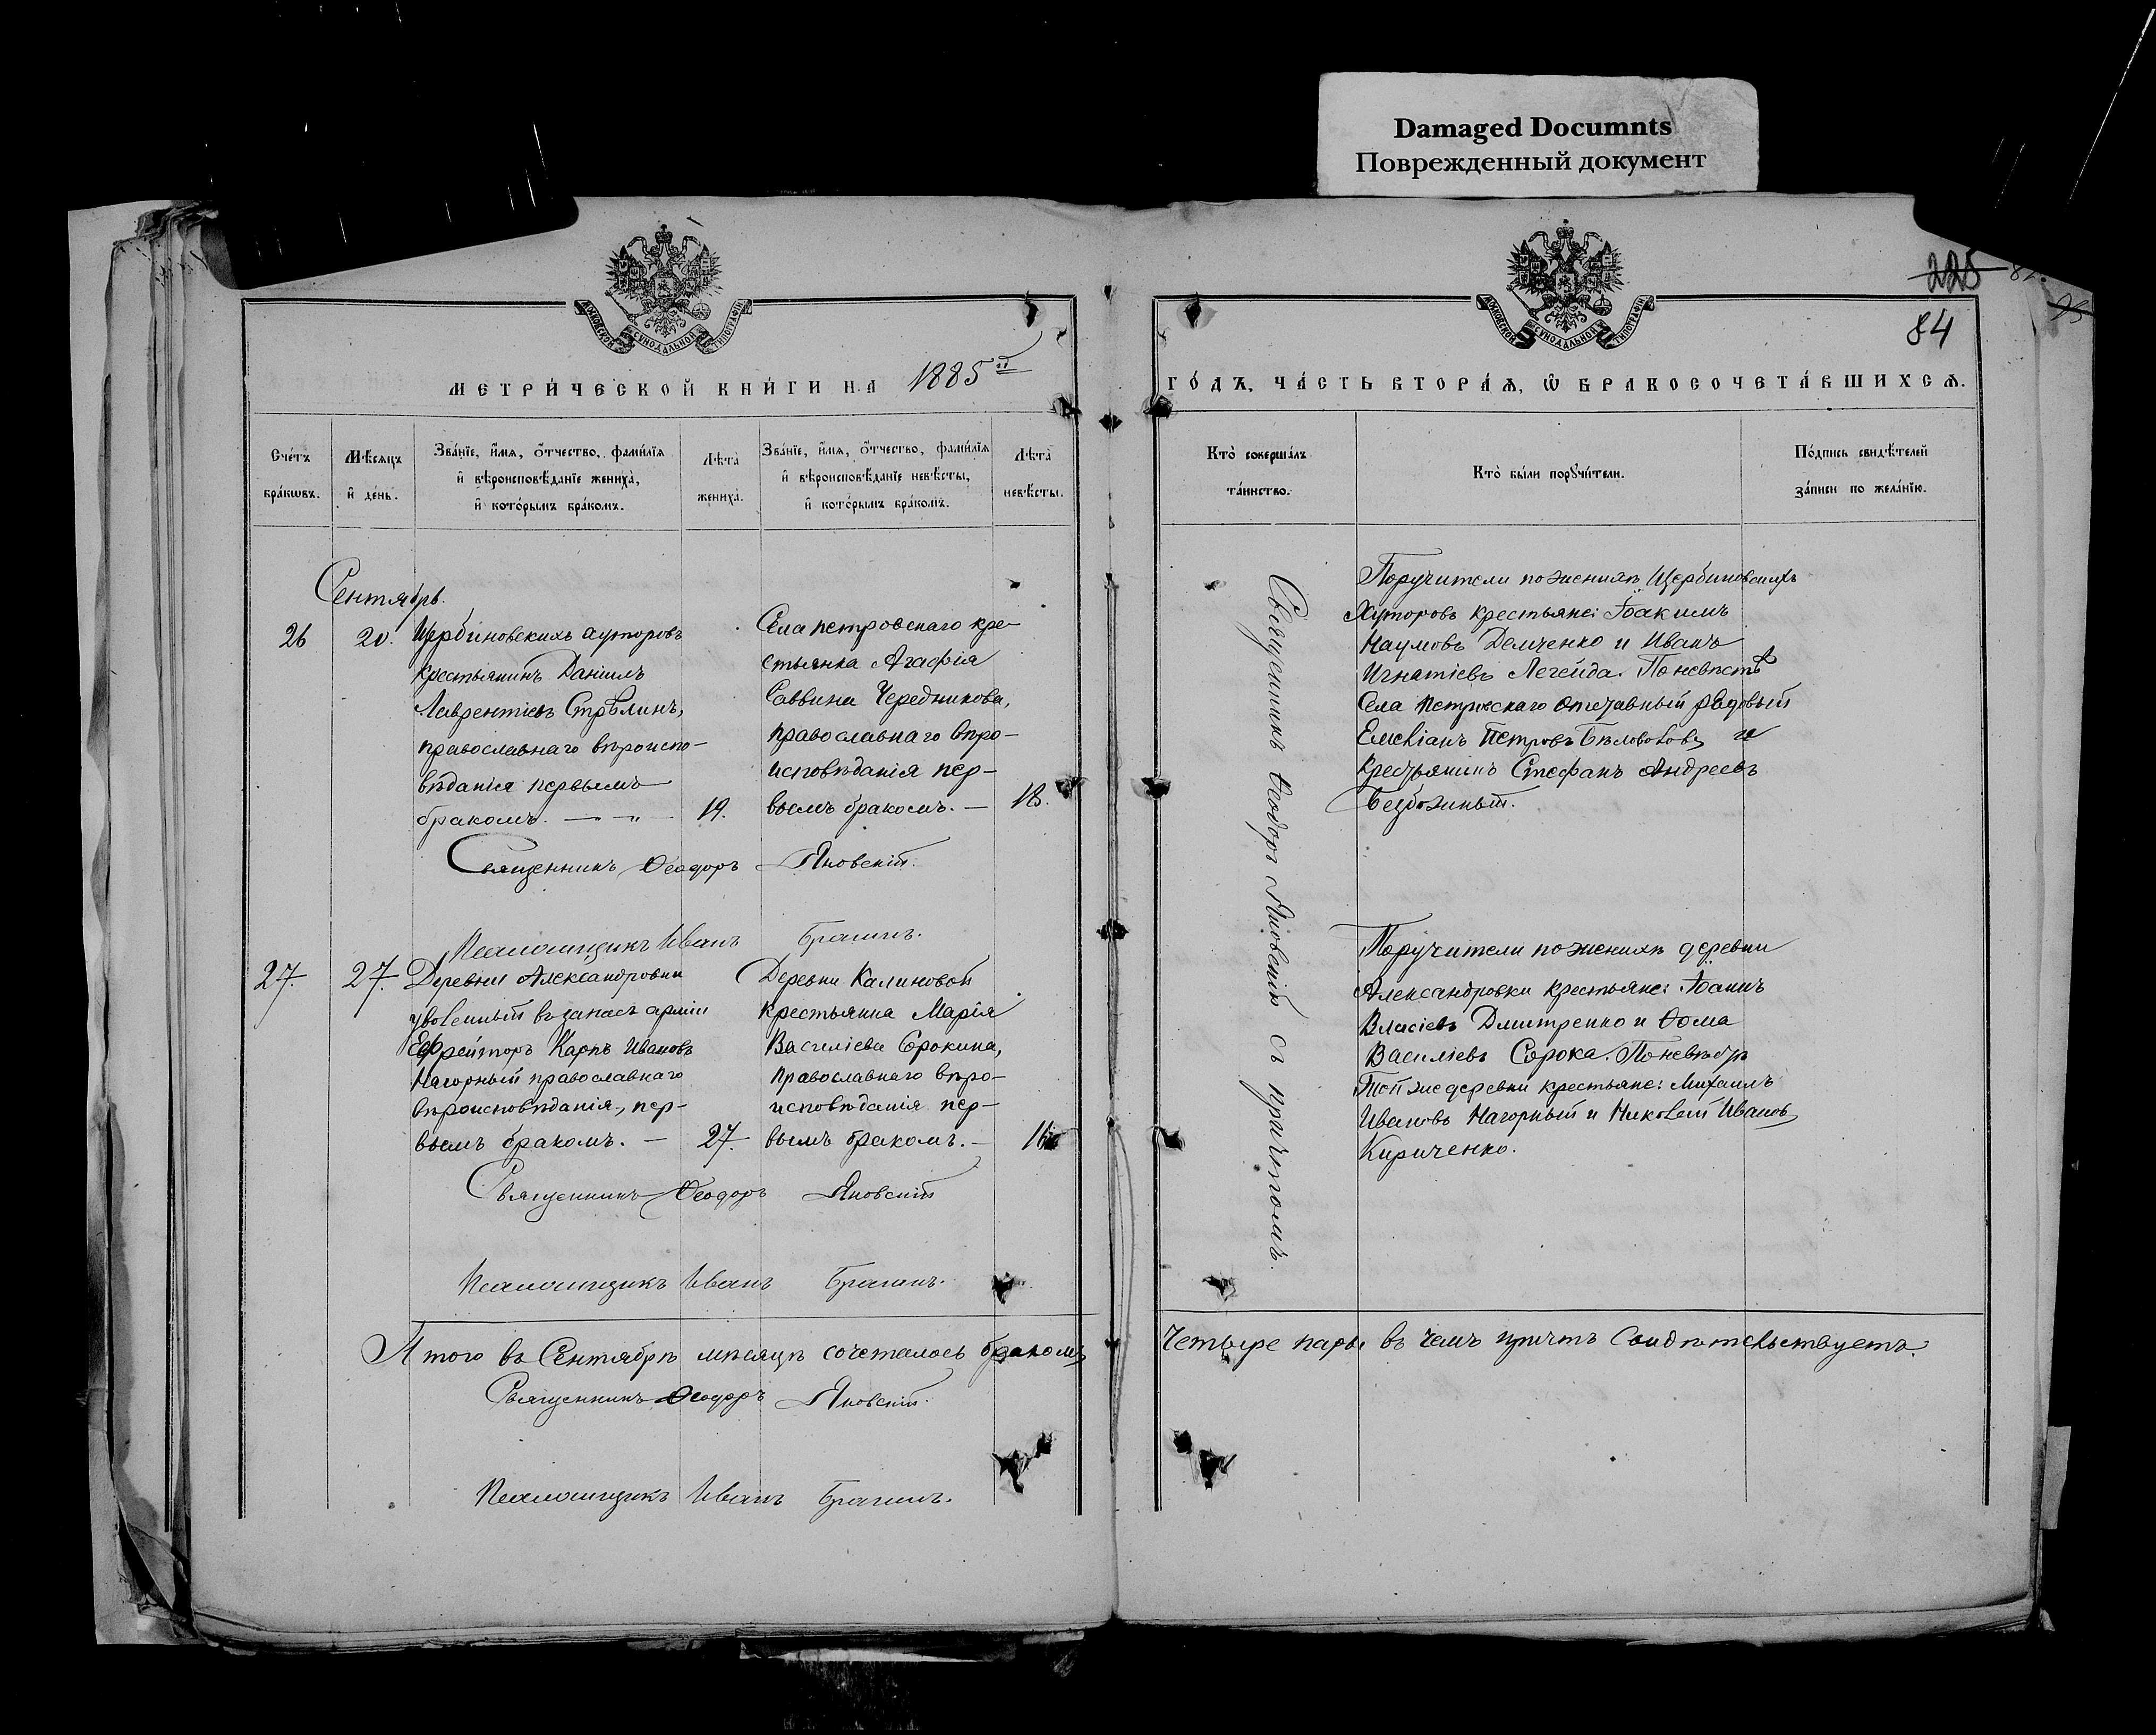 Damaged Documnts
Поврежденный документ
225
84
МОСКОВСКОЙ СѴНОДАЛЬНОЙ ТИПОГРАФІИ
МОСКОВСКОЙ СѴНОДАЛЬНОЙ ТИПОГРАФІИ
МЕТРИ́ЧЕСКОЙ КНИ́ГИ НА 1885й
ГО́ДЪ, ЧА́СТЬ ВТОРА́Я, Ѡ БРАКОСОЧЕТА́ВШИХСЯ.
Сче́тъ бра́кѡвъ.
Мѣ́сяцъ и де́нь.
Зва́нїе, и́мя, о́тчество, фами́лїя
и вѣроисповѣ́данїе жениха̀,
и кото́рымъ бра́комъ.
Лѣта̀ жениха̀.
Зва́нїе, и́мя, о́тчество, фами́лїя
и вѣроисповѣ́данїе невѣ́сты,
и кото́рымъ бра́комъ.
Лѣта̀ невѣ́сты.
Кто̀ соверша́лъ та́инство.
Кто̀ бы́ли порꙋчи́тели.
По́дпись свидѣ́телей
за́писи по жела́нїю.
Сентябрь.
26
20.
Щербиновскихъ хуторовъ
крестьянинъ Даніилъ
Лаврентіевъ Стрѣлинъ,
православнаго вѣроиспо-
вѣданія первымъ
бракомъ. — „ —
19.
Села Петровскаго кре-
стьянка Агафія
Саввина Чередникова,
православнаго вѣро-
исповѣданія пер-
вымъ бракомъ. —
18.
Священникъ Ѳеодоръ Яновскій.
Псаломщикъ Иванъ Брагинъ.
Священникъ Ѳеодоръ Яновскій съ причтомъ.
Поручители по женихѣ Щербиновскихъ
Хуторовъ крестьяне: Іоакимъ
Наумовъ Демченко и Иванъ
Игнатіевъ Легейда. По невѣстѣ
Села Петровскаго отставный рядовый
Емеліанъ Петровъ Бѣловоловъ и
крестьянинъ Стефанъ Андреевъ
Безбожный.
27.
27.
Деревни Александровки
уволенный въ запасъ арміи
Ефрейторъ Карпъ Ивановъ
Нагорный православнаго
вѣроисповѣданія, пер-
вымъ бракомъ. —
27.
Деревни Калиновой
крестьянка Марія
Василіева Сорокина,
православнаго вѣро-
исповѣданія пер-
вымъ бракомъ. —
16
Священникъ Ѳеодоръ Яновскій
Псаломщикъ Иванъ Брагинъ.
Поручители по женихѣ деревни
Александровки крестьяне: Іоаннъ
Власіевъ Дмитренко и Ѳома
Василіевъ Сорока. По невѣстѣ
Той же деревни крестьяне: Михаилъ
Ивановъ Нагорный и Николай Ивановъ
Кириченко.
Итого въ Сентябрѣ мѣсяцѣ сочеталось бракомъ Четыре пары въ чемъ причтъ Свидѣтельствуетъ.
Священникъ Ѳеодоръ Яновскій.
Псаломщикъ Иванъ Брагинъ.